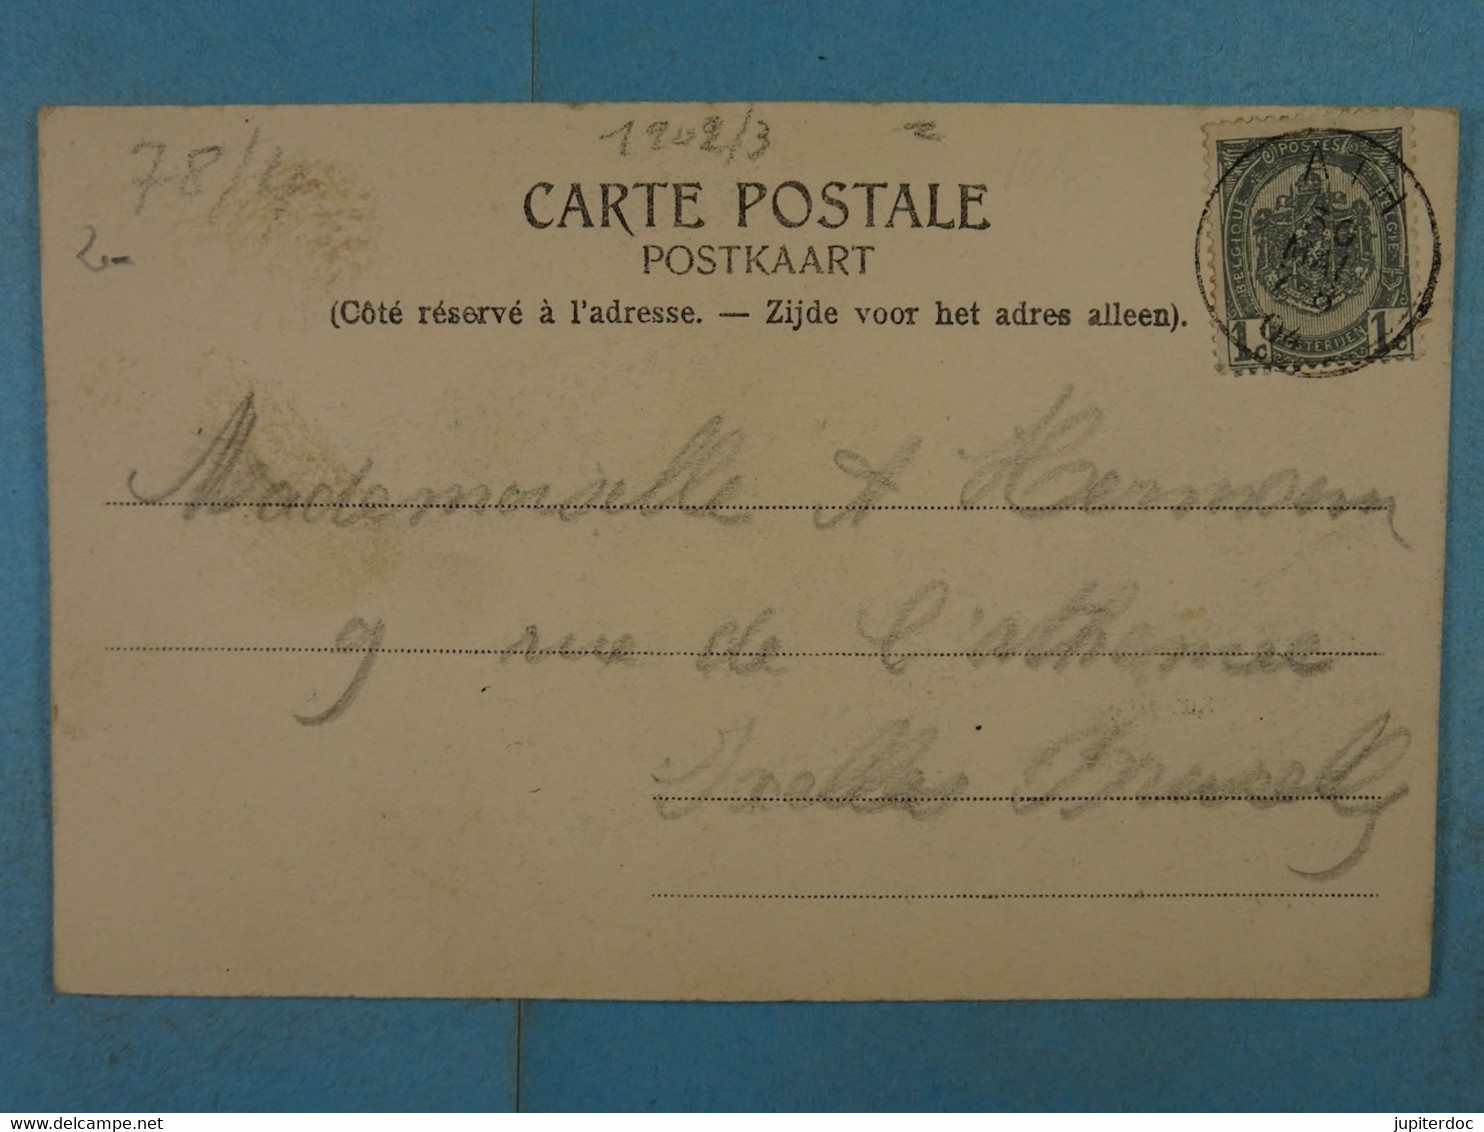 78/4
1902/3
2
CARTE POSTALE
POSTKAART
(Côté réservé à l'adresse. — Zijde voor het adres alleen).
POSTES
BELGIQUE
BELGIE
1c 1c
ATH
30
MAI
04
Mademoiselle A
9 rue de l'athenee
Ixelles Bruxelles
delcampe.net
jupiterdoc